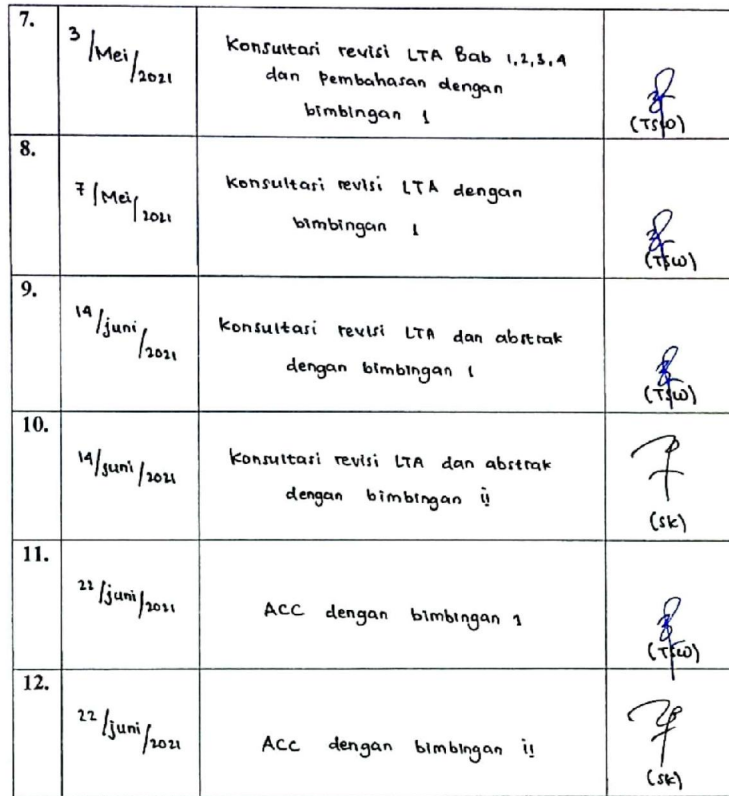 7.
3/Mei/2021
Konsultasi revisi LTA Bab 1,2,3,4
dan pembahasan dengan
bimbingan 1
(TSW)
8.
7/Mei/2021
Konsultasi revisi LTA dengan
bimbingan 1
(TSW)
9.
14/juni/2021
Konsultasi revisi LTA dan abstrak
dengan bimbingan 1
(TSW)
10.
14/juni/2021
Konsultasi revisi LTA dan abstrak
dengan bimbingan ii
(SK)
11.
22/juni/2021
ACC dengan bimbingan 1
(TSW)
12.
22/juni/2021
ACC dengan bimbingan ii
(SK)